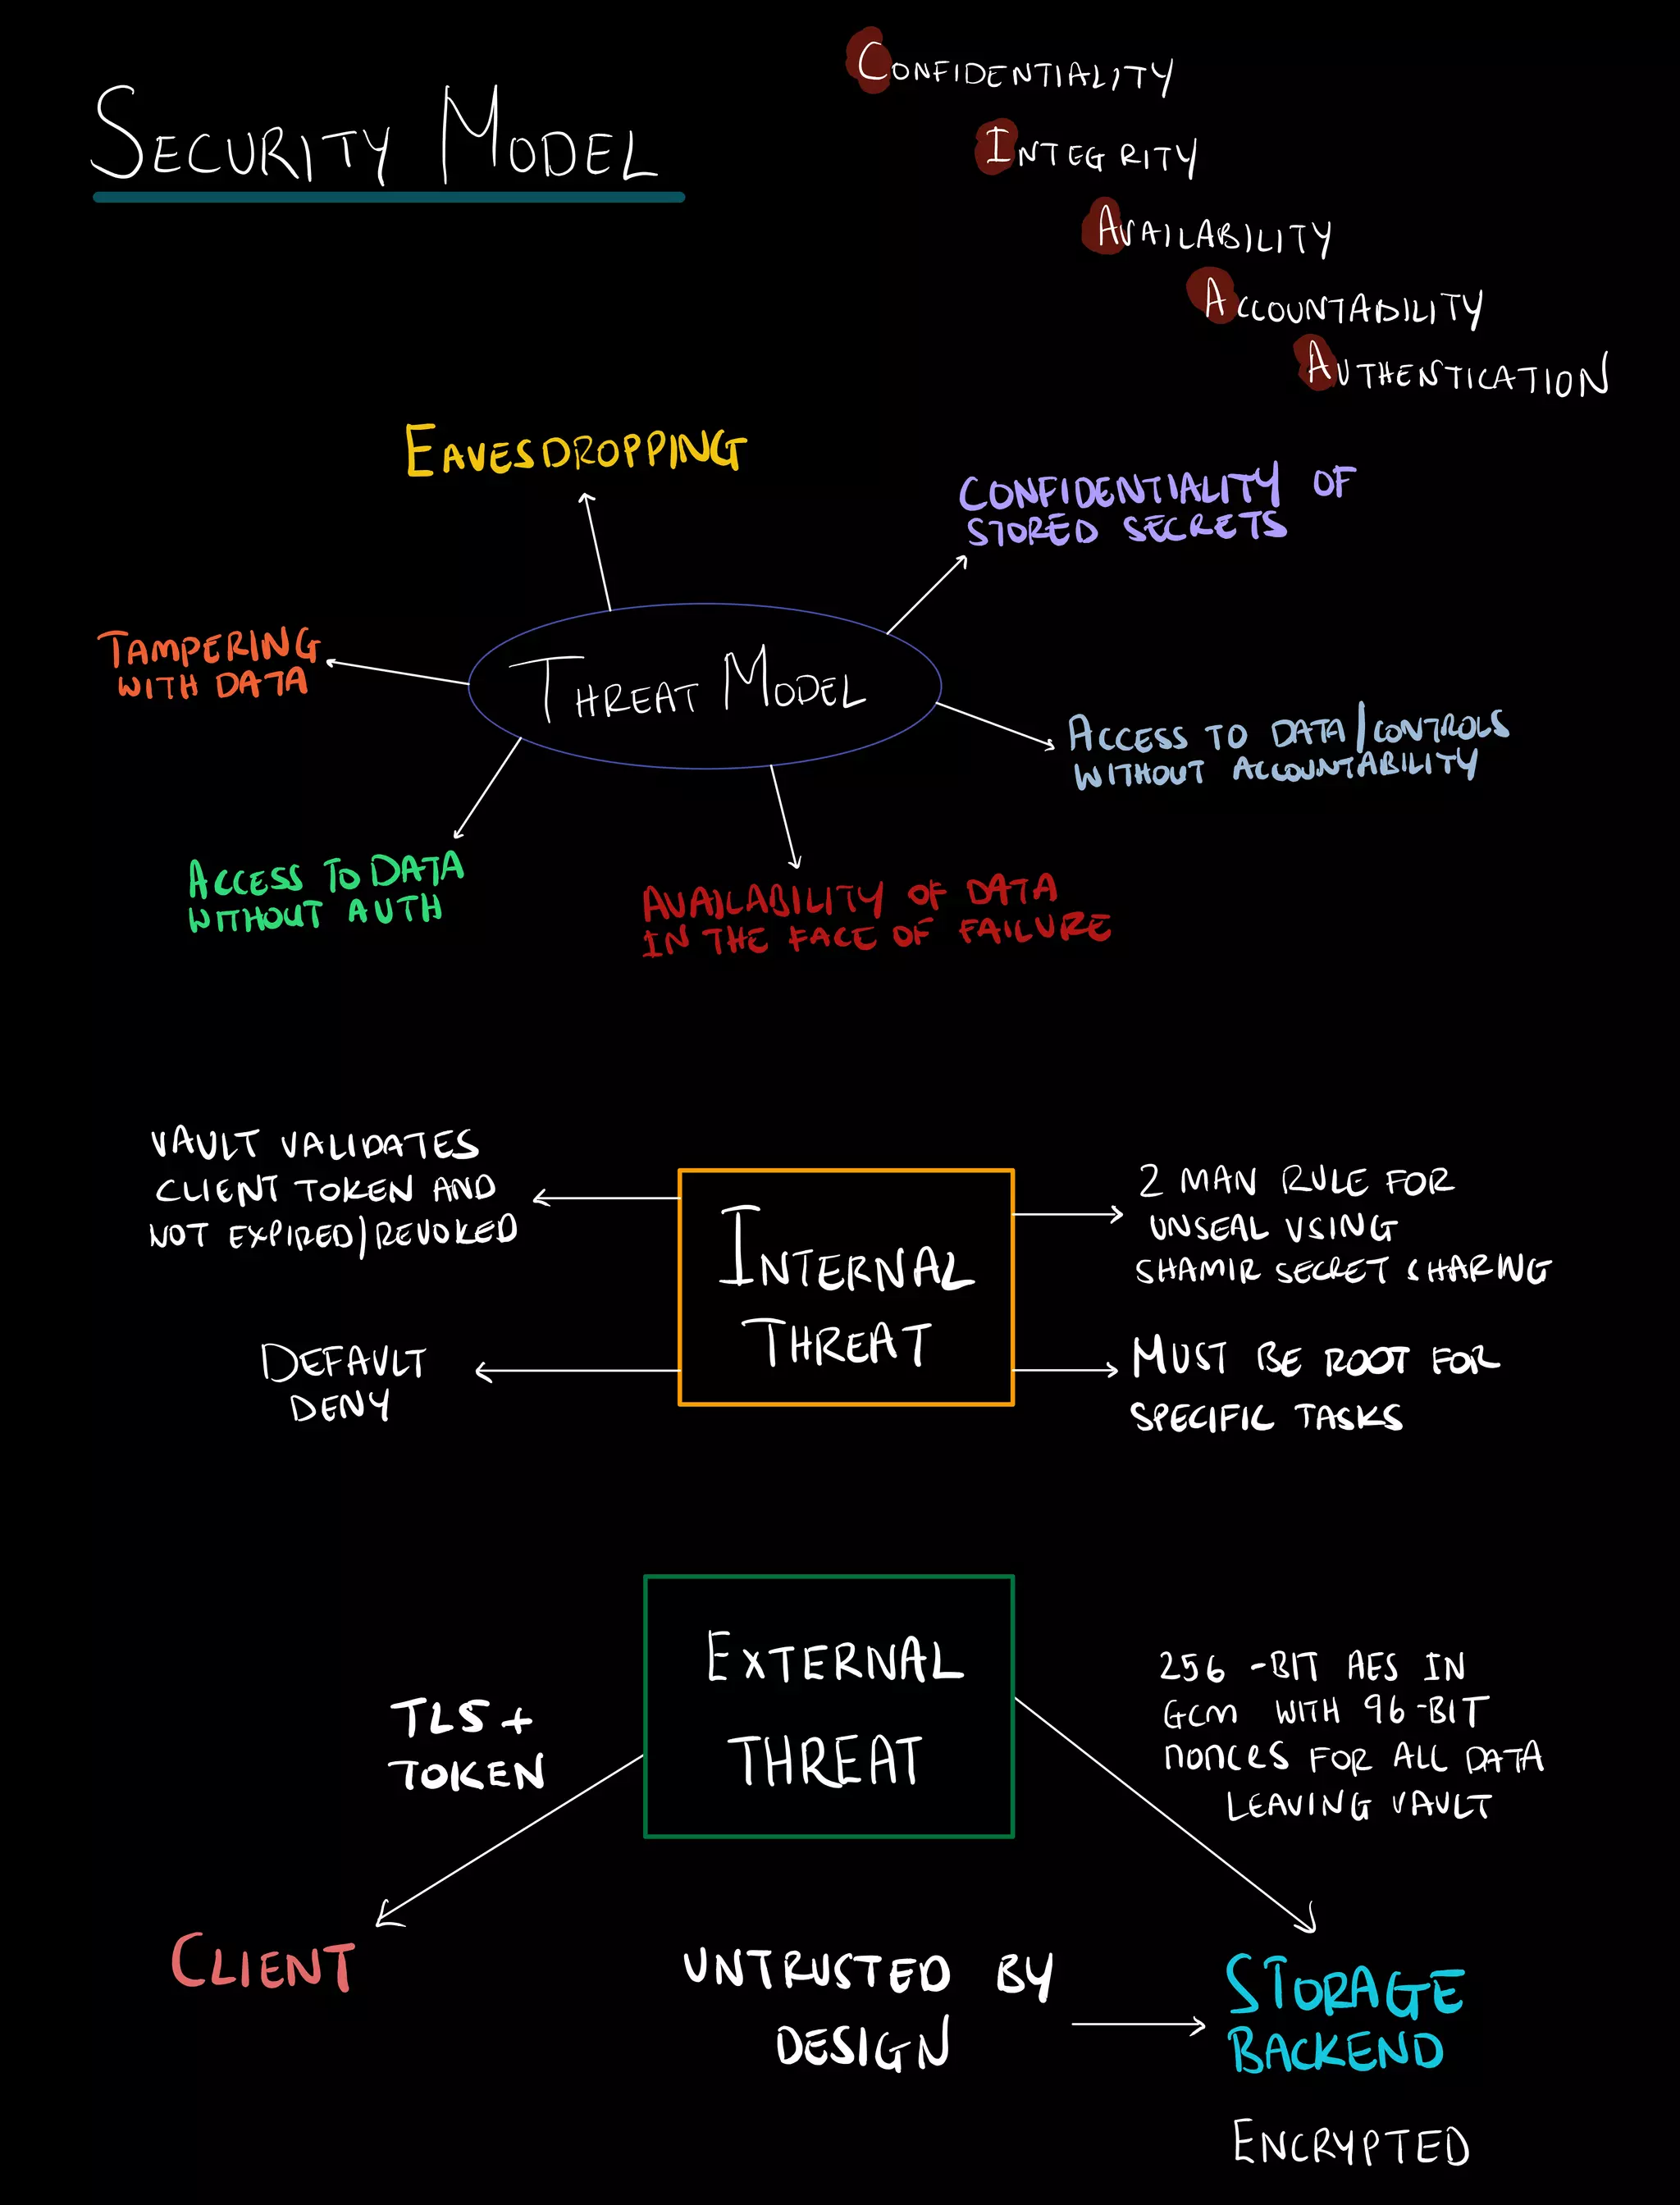 SECURITY MODEL
CONFIDENTIALITY
INTEGRITY
AVAILABILITY
ACCOUNTABILITY
AUTHENTICATION
EAVESDROPPING
CONFIDENTIALITY OF
STORED SECRETS
TAMPERING
WITH DATA
THREAT MODEL
ACCESS TO DATA/CONTROLS
WITHOUT ACCOUNTABILITY
ACCESS TO DATA
WITHOUT AUTH
AVAILABILITY OF DATA
IN THE FACE OF FAILURE
VAULT VALIDATES
CLIENT TOKEN AND
NOT EXPIRED/REVOKED
DEFAULT
DENY
INTERNAL
THREAT
2 MAN RULE FOR
UNSEAL USING
SHAMIR SECRET SHARING
MUST BE ROOT FOR
SPECIFIC TASKS
EXTERNAL
THREAT
TLS +
TOKEN
256-BIT AES IN
GCM WITH 96-BIT
NONCES FOR ALL DATA
LEAVING VAULT
CLIENT
UNTRUSTED BY
DESIGN
STORAGE
BACKEND
ENCRYPTED